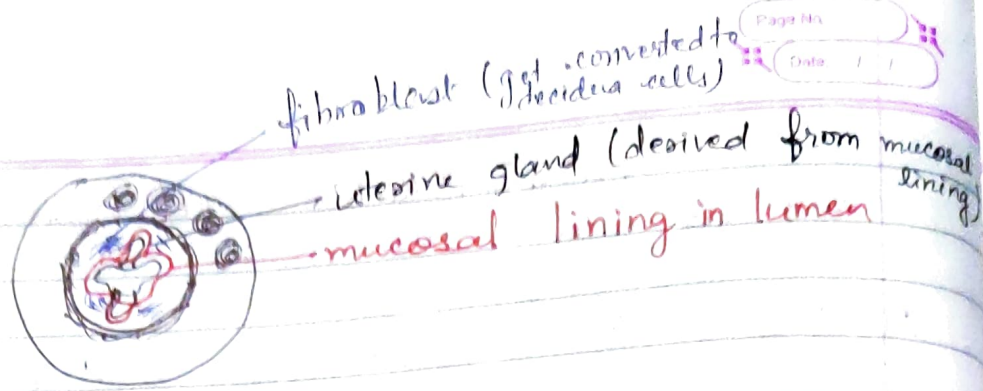 Page No.
Date / /
fibroblast (get converted to
decidua cells)
uterine gland (derived from mucosal
lining)
mucosal lining in lumen